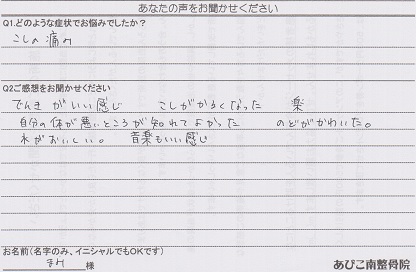 あなたの声をお聞かせください
Q1.どのような症状でお悩みでしたか?
こしの痛み
Q2ご感想をお聞かせください
でんき がいい感じ こしがかるくなった 楽
自分の体が悪いところが知れてよかった のどがかわいた。
水がおいしい。 音楽もいい感じ
お名前(名字のみ、イニシャルでもOKです)
様
あびこ南整骨院